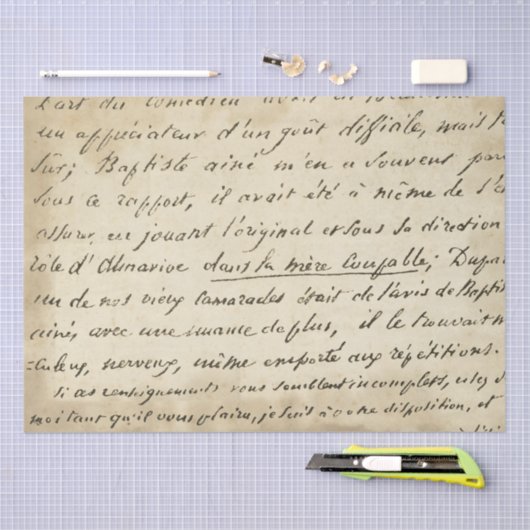 L'art du comédien avait en
un appréciateur d'un goût difficile, mais
sûr; Baptiste ainé m'en a souvent
sous ce rapport, il avait été à même de
assurer en jouant l'original et sous sa direction
rôle d'Almaviva dans la mère Coupable;
un de nos vieux Camarades était de l'avis de
ainé, avec une nuance de plus, il le trouvait
nerveux, même emporté aux répétitions.
Si ces renseignements vous semblent incomplets,
moi tant qu'il vous plaira, je suis à votre disposition, et